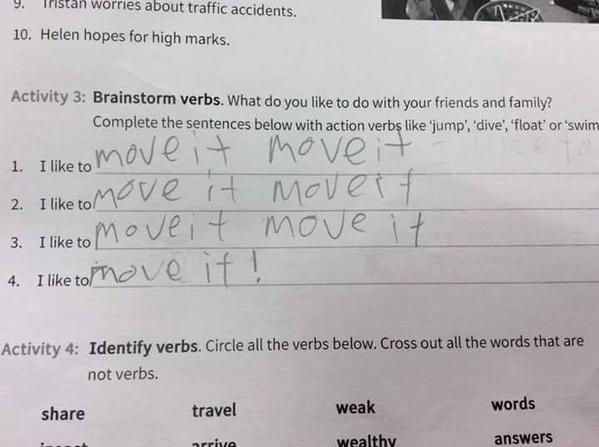 9. Tristan worries about traffic accidents.
10. Helen hopes for high marks.
Activity 3: Brainstorm verbs. What do you like to do with your friends and family?
Complete the sentences below with action verbs like ‘jump’, ‘dive’, ‘float’ or ‘swim
1. I like to move it move it
2. I like to move it move it
3. I like to move it move it
4. I like to move it!
Activity 4: Identify verbs. Circle all the verbs below. Cross out all the words that are
not verbs.
share travel weak words
arrive wealthy answers